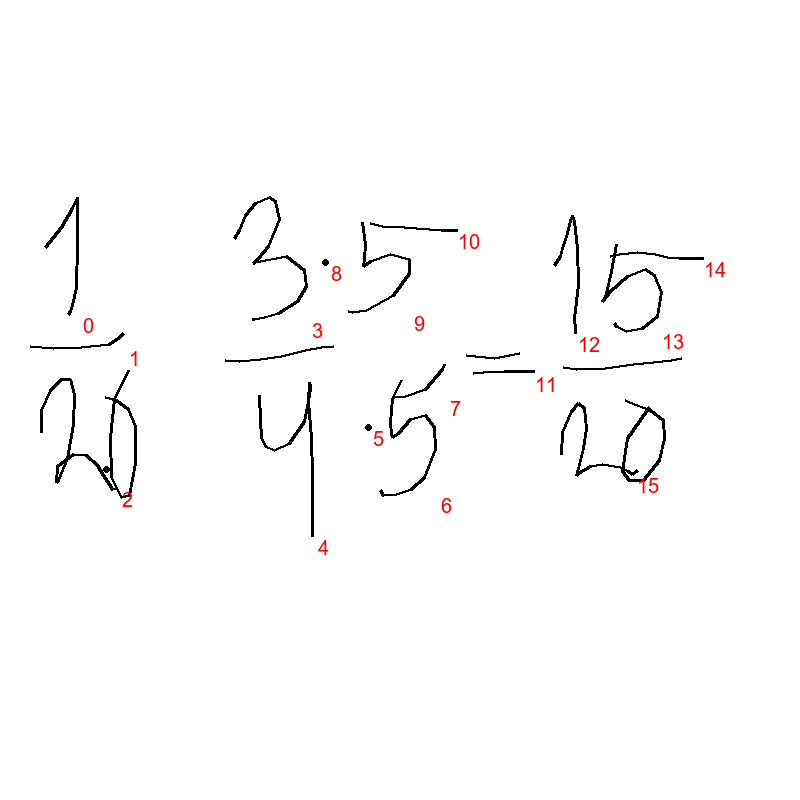 1/20 3·5/4·5 = 15/20
0 1 2 3 4 5 6 7 8 9 10 11 12 13 14 15